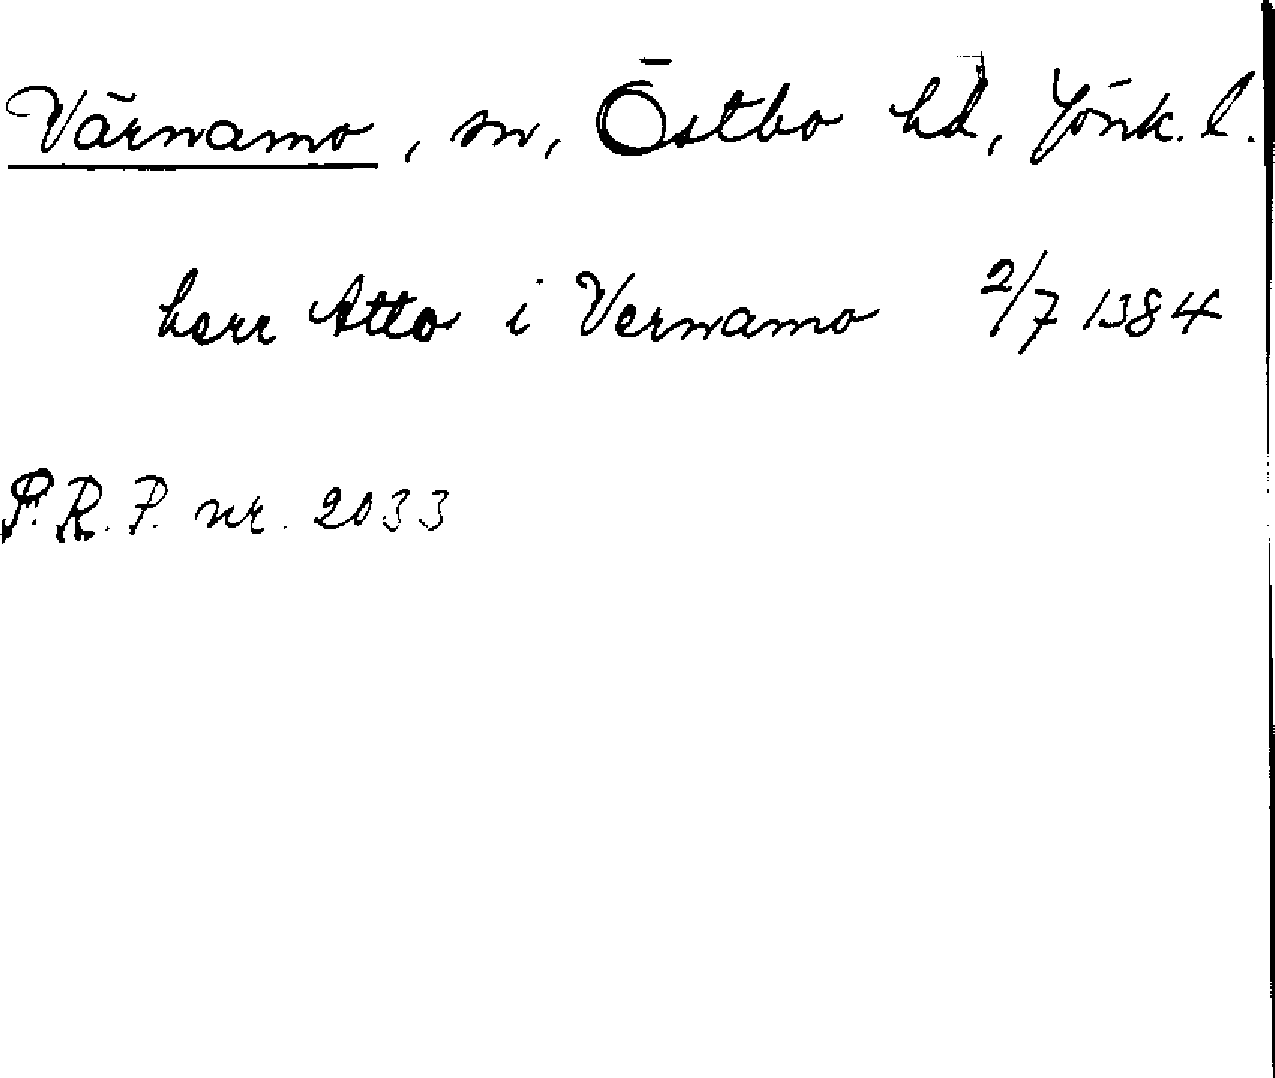 Värnamo, sn, Östbo hd, Jönk. l.
herr Atto i Vernamo 2/7 1384
P.R.P. nr. 2033